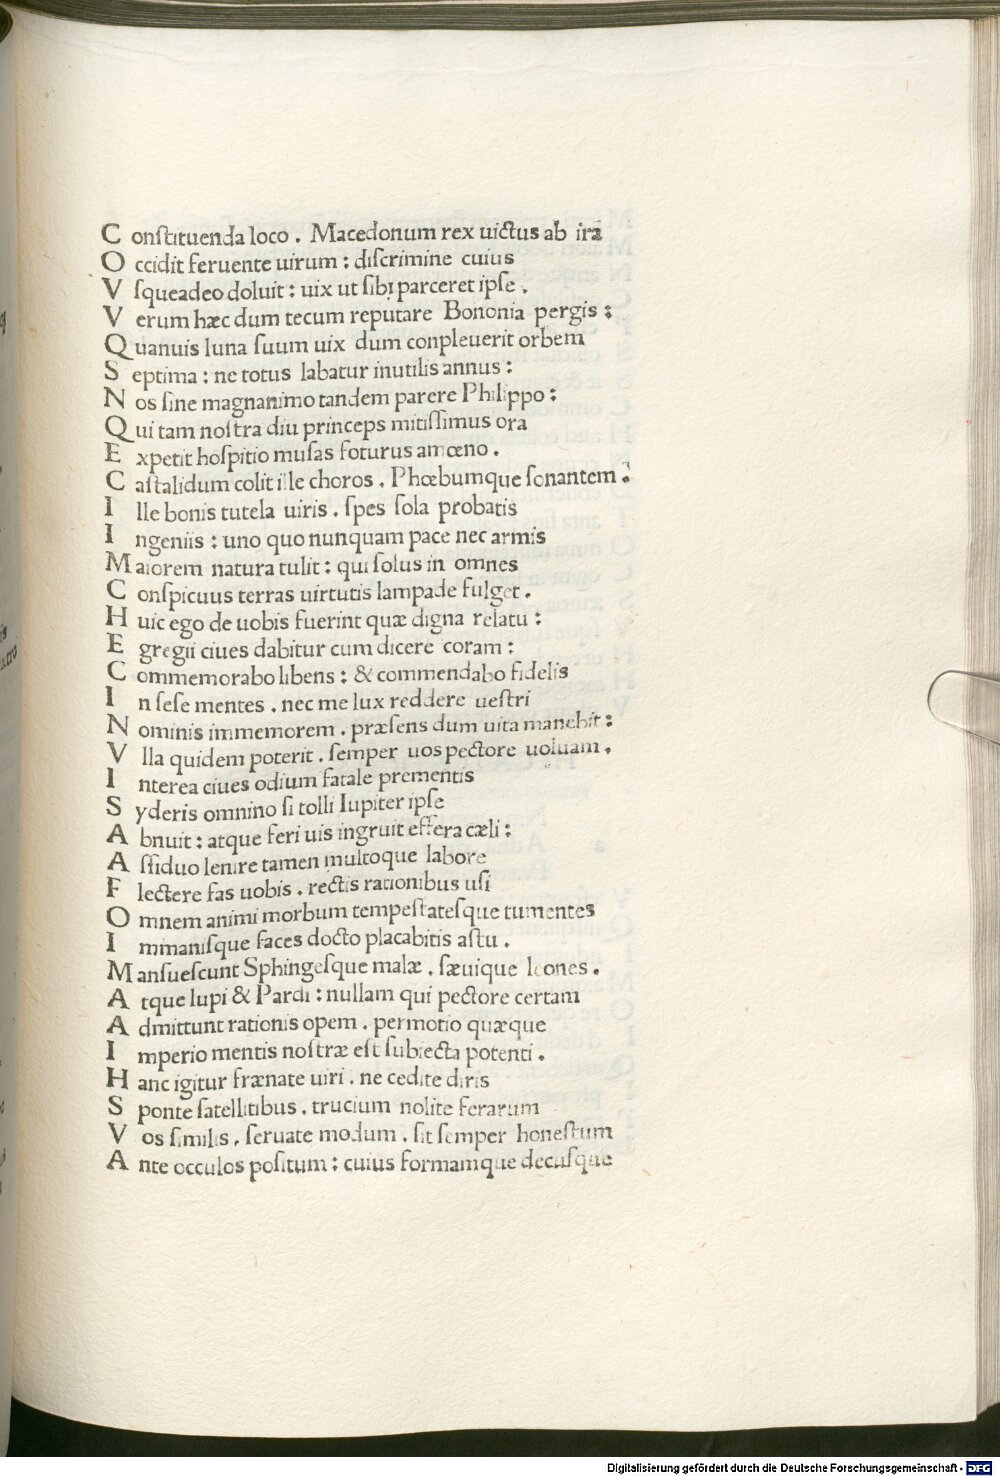 Conſtituenda loco . Macedonum rex uictus ab ira
Occidit feruente uirum : diſcrimine cuius
Vſqueadeo doluit : uix ut ſibi parceret ipſe .
Verum hæc dum tecum reputare Bononia pergis :
Quanuis luna ſuum uix dum conpleuerit orbem
Septima : ne totus labatur inutilis annus :
Nos ſine magnanimo tandem parere Philippo :
Qui tam noſtra diu princeps mitiſſimus ora
Expetit hoſpitio muſas foturus amœno .
Caſtalidum colit ille choros . Phœbumque ſonantem .
Ille bonis tutela uiris . ſpes ſola probatis
Ingeniis : uno quo nunquam pace nec armis
Maiorem natura tulit : qui ſolus in omnes
Conſpicuus terras uirtutis lampade fulget .
Huic ego de uobis fuerint quæ digna relatu :
Egregii ciues dabitur cum dicere coram :
Commemorabo libens : & commendabo fidelis
In ſeſe mentes . nec me lux reddere ueſtri
Nominis immemorem . præſens dum uita manebit :
Vlla quidem poterit . ſemper uos pectore uoluam .
Interea ciues odium fatale prementis
Syderis omnino ſi tolli Iupiter ipſe
Abnuit : atque feri uis ingruit effera cæli :
Aſſiduo lenire tamen multoque labore
Flectere fas uobis . rectis rationibus uſi
Omnem animi morbum tempeſtateſque tumentes
Immaniſque faces docto placabitis aſtu .
Manſueſcunt Sphingeſque malæ . ſæuique leones .
Atque lupi & Pardi : nullam qui pectore certam
Admittunt rationis opem . permotio quæque
Imperio mentis noſtræ eſt ſubiecta potenti .
Hanc igitur frænate uiri . ne cedite diris
Sponte ſatellitibus . trucium nolite ferarum
Vos ſimilis . ſeruate modum . ſit ſemper honeſtum
Ante occulos poſitum : cuius formamque decuſque
Digitalisierung gefördert durch die Deutsche Forschungsgemeinschaft - DFG